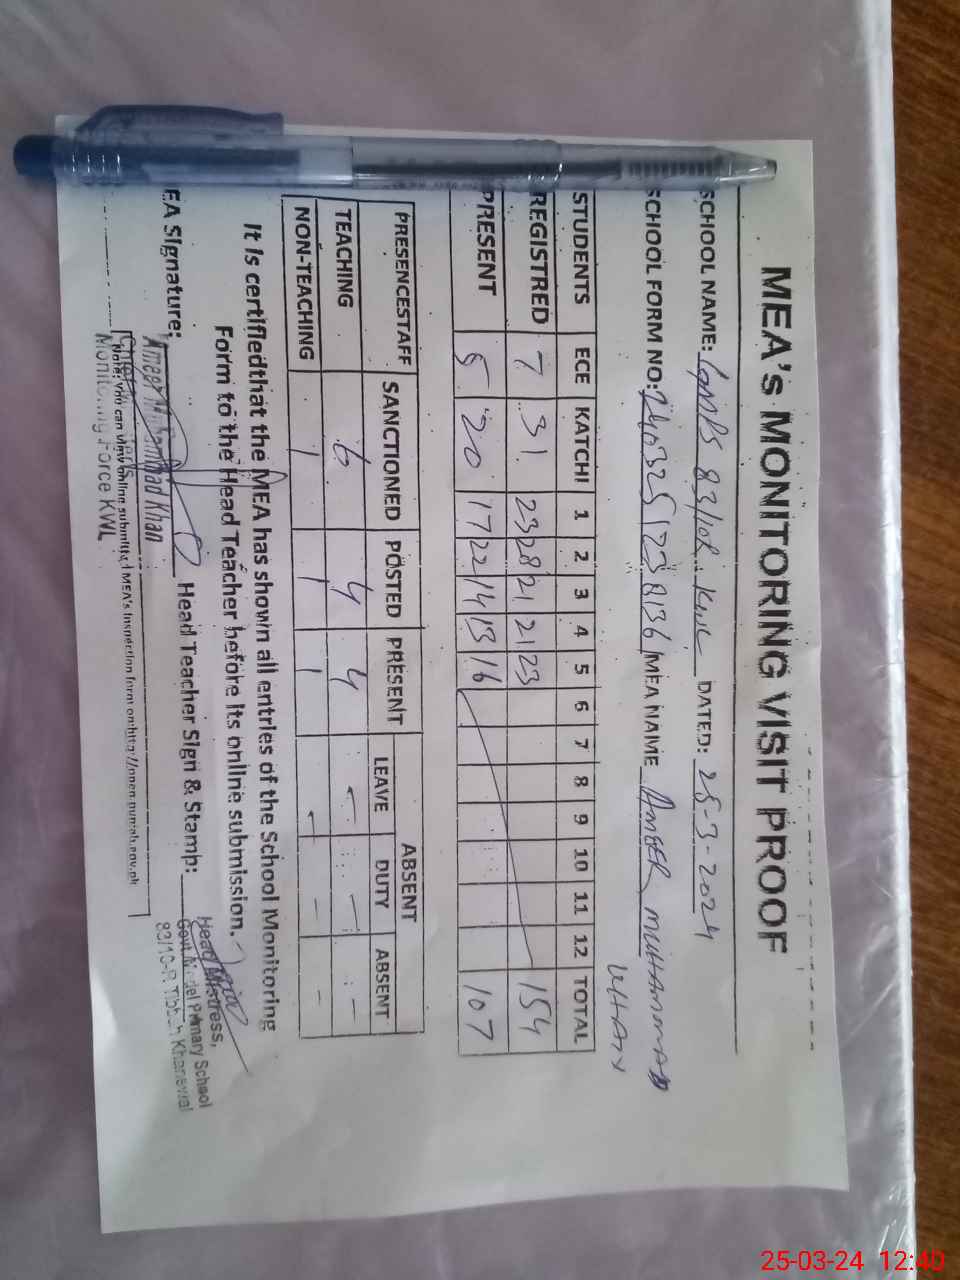 MEA's MONITORING VISIT PROOF
SCHOOL NAME: GMPS 83/10R. KWL DATED: 25-3-2024
SCHOOL FORM NO: MEA NAME AMEER MUHAMMAD
KHAN
STUDENTS ECE KATCHI 1 2 3 4 5 6 7 8 9 10 11 12 TOTAL
REGISTRED 7 31 23 28 21 21 23 154
PRESENT 5 20 17 22 14 13 16 107
PRESENCESTAFF SANCTIONED POSTED PRESENT ABSENT
LEAVE DUTY ABSENT
TEACHING 6 4 4 - - -
NON-TEACHING 1 1 1 - - -
It is certifiedthat the MEA has shown all entries of the School Monitoring
Form to the Head Teacher before its online submission.
EA Signature: Head Teacher Sign & Stamp:
Ameer Muhammad Khan
Monitoring Force KWL
Head Mistress,
Govt. Model Primary School
83/10-R Tibbah Khanewal
Note: you can view online submitted MEA's Inspection form on http://open.punjab.gov.pk
25-03-24 12:40